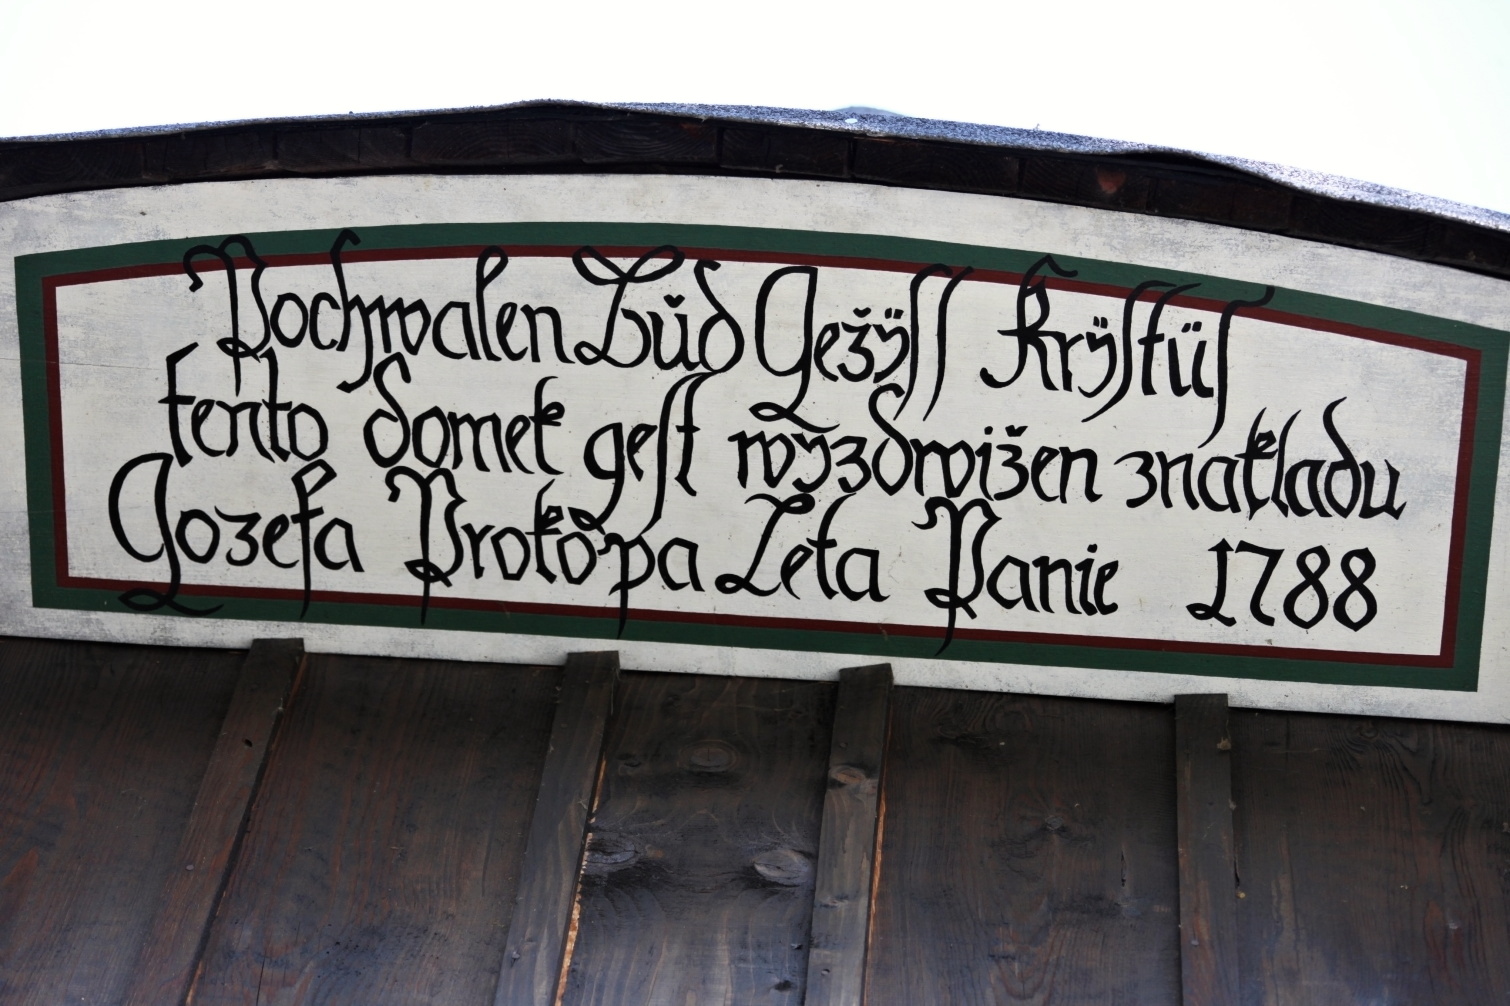 Pochwalen Bůd Gežÿſſ Kryſtüſ
tento domek geſt wÿzdwižen znakladu
Gozefa Proköpa Leta Panie 1788